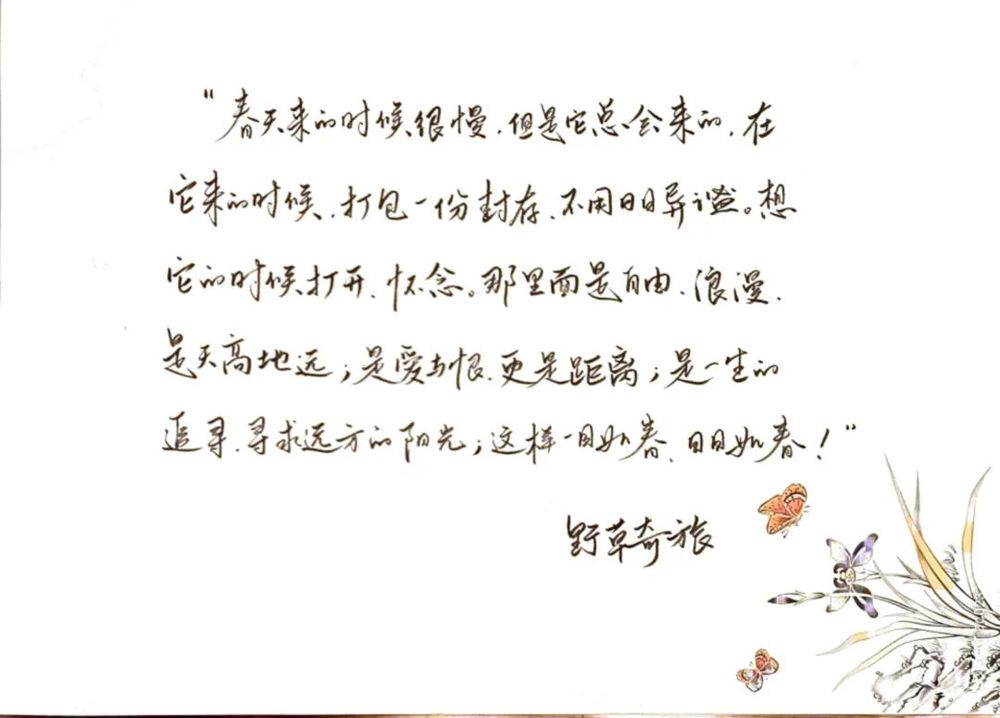 “春天来的时候很慢，但是它总会来的，在
它来的时候，打包一份封存，不用日日异谧。想
它的时候打开、怀念。那里面是自由、浪漫，
是天高地远；是爱与恨，更是距离；是一生的
追寻，寻求远方的阳光；这样一日如春、日日如春！”
野草奇旅